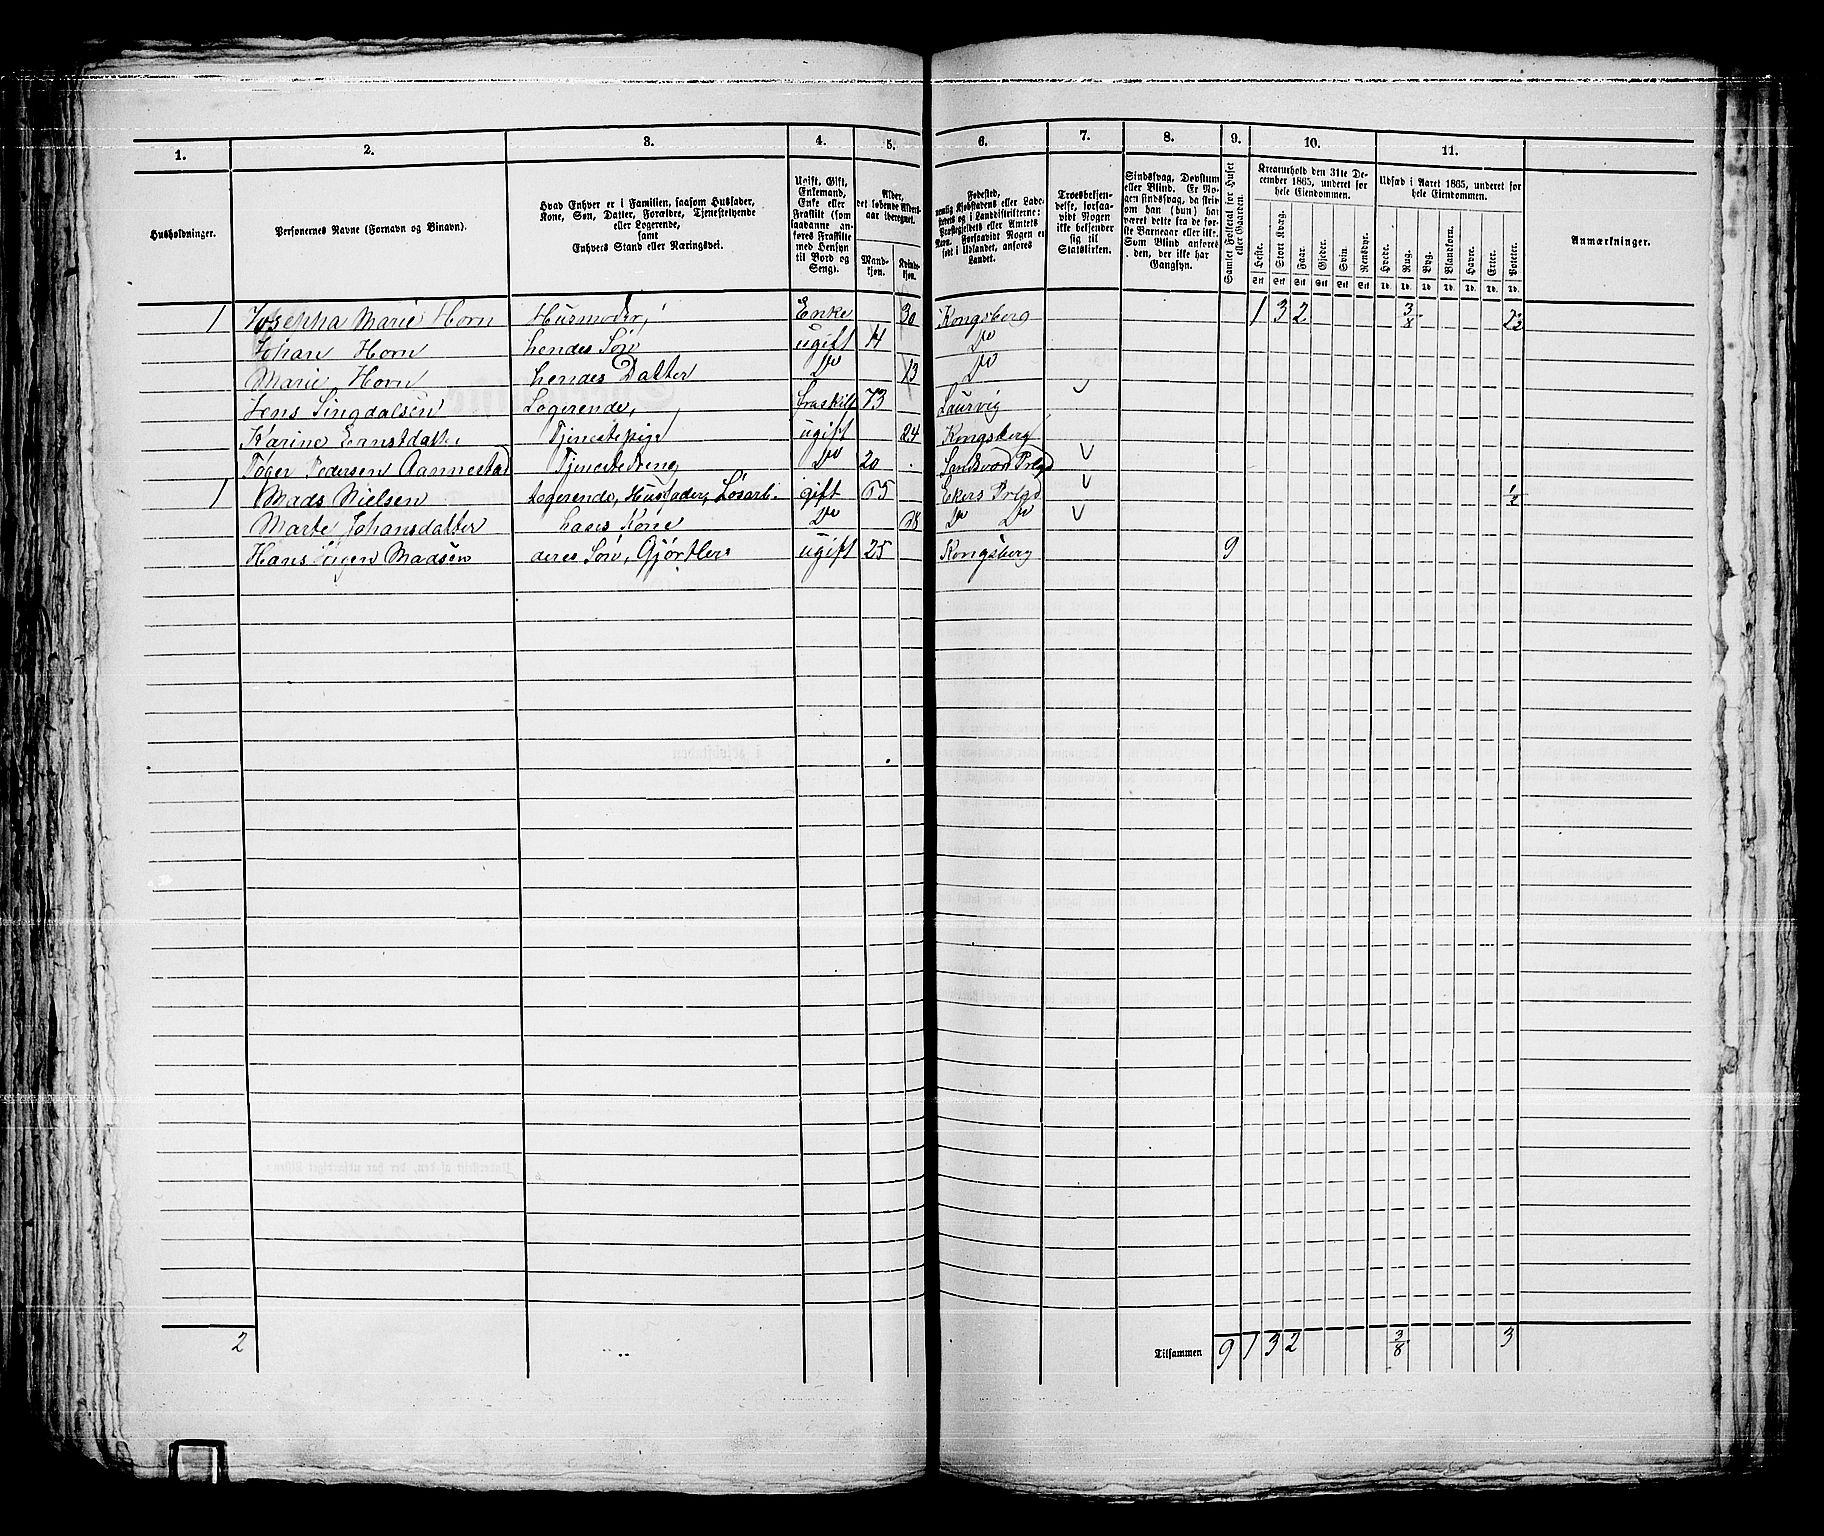 1. 2. 3. 4. 5. 6. 7. 8. 9. 10. 11.
Husholdninger.
Personernes Navne (Fornavn og Binavn).
Hvad Enhver er i Familien, saasom Husfader, Kone, Søn, Datter, Forældre, Tjenestetyende eller Logerende, samt Enhvers Stand eller Næringsvei.
Ugift, Gift, Enkemand, Enke eller Fraskilt (som saadanne anføres Fraskilte med Hensyn til Bord og Seng).
Alder, det løbende Alders-aar iberegnet.
Mand-kjøn. Kvinde-kjøn.
Fødested, nemlig Kjøbstadens eller Ladestedets og i Landdistrikterne: Præstegjeldets eller Amtets Navn. Forsaavidt Nogen er født i Udlandet, anføres Landet.
Troesbekjen-delse, forsaa-vidt Nogen ikke bekjender sig til Statskirken.
Sindssvag, Døvstum eller Blind. Er Nogen sindssvag, da skrives om han (hun) har været dette fra de første Barneaar eller ikke. Som Blind anføres den, der ikke har Gangsyn.
Samlet Folketal for Huset eller Gaarden.
Kreaturhold den 31te December 1865, underet for hele Eiendommen.
Heste. Stort Kvæg. Faar. Gjeder. Svin. Rensdyr.
Udsæd i Aaret 1865, underet for hele Eiendommen.
Hvede. Rug. Byg. Blandkorn. Havre. Erter. Poteter.
Anmærkninger.
Stk Stk Stk Stk Stk Stk Td. Td. Td. Td. Td. Td. Td.
1 Josepha Marie Horn Husmoder, Enke 30 Kongsberg 1 3 2 3/8
Johan Horn hendes Søn ugift 14 Do
Marie Horn hendes Datter Do 13 Do
Jens Singdalsen Logerende, fraskilt 73 Laurvig
Karine Ernstdatter Tjenestepige ugift 24 Kongsberg
Tøger Pedersen Aannestad Tjenestedreng Do 20 Sandsvær Prlgd
1 Mads Nielsen Logerende, Husfader, Løsarb. gift 65 Ekers Prlgd 1/2
Marte Johansdatter hans Kone Do Do Do
Hans Jørgen Madsen deres Søn, Gjørtler ugift 25 Kongsberg 9
2 Tilsammen 9 1 3 2 3/8 3